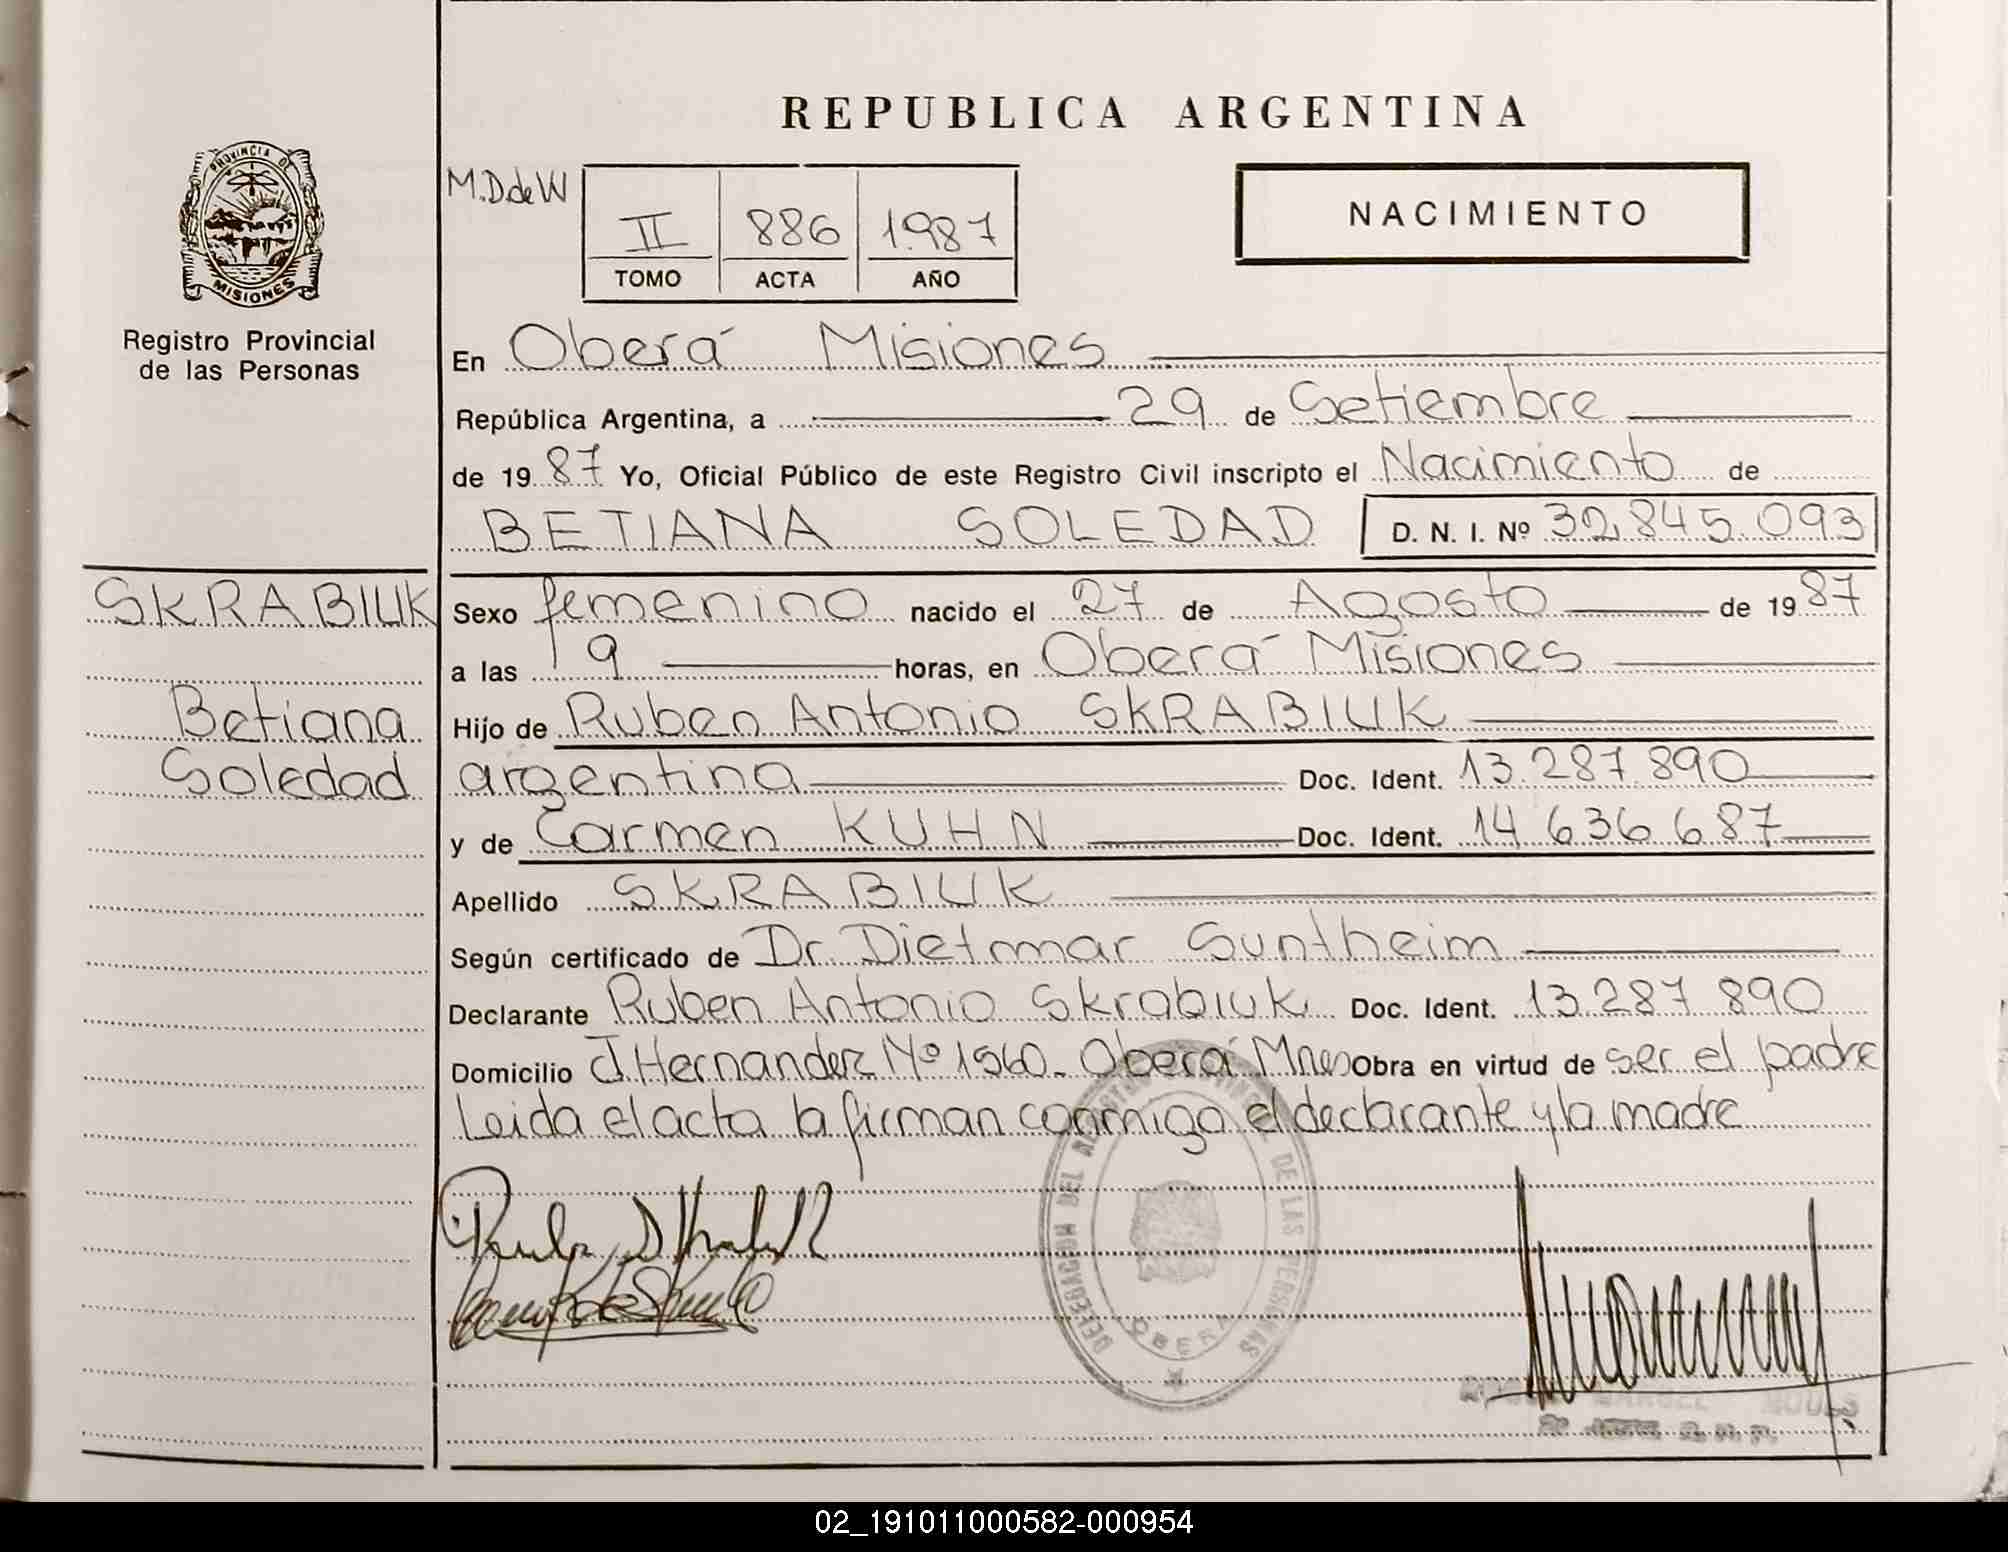 REPUBLICA ARGENTINA
PROVINCIA DE
MISIONES
Registro Provincial
de las Personas
M.D.de W
II 886 1.987
TOMO ACTA AÑO
NACIMIENTO
En Oberá Misiones
República Argentina, a 29 de Setiembre
de 19 87 Yo, Oficial Público de este Registro Civil inscripto el Nacimiento de
BETIANA SOLEDAD D. N. I. Nº 32.845.093
SKRABIUK
Betiana
Soledad
Sexo femenino nacido el 27 de Agosto de 19 87
a las 9 horas, en Oberá Misiones
Hijo de Ruben Antonio SKRABIUK
argentina Doc. Ident. 13.287.890
y de Carmen KUHN Doc. Ident. 14.636.687
Apellido SKRABIUK
Según certificado de Dr. Dietmar Suntheim
Declarante Ruben Antonio Skrabiuk Doc. Ident. 13.287.890
Domicilio J. Hernandez Nº 1560. Oberá Mnes Obra en virtud de ser el padre
Leida el acta la firman conmigo el declarante y la madre
DELEGACION DEL REGISTRO PROVINCIAL DE LAS PERSONAS
OBERA
02_191011000582-000954